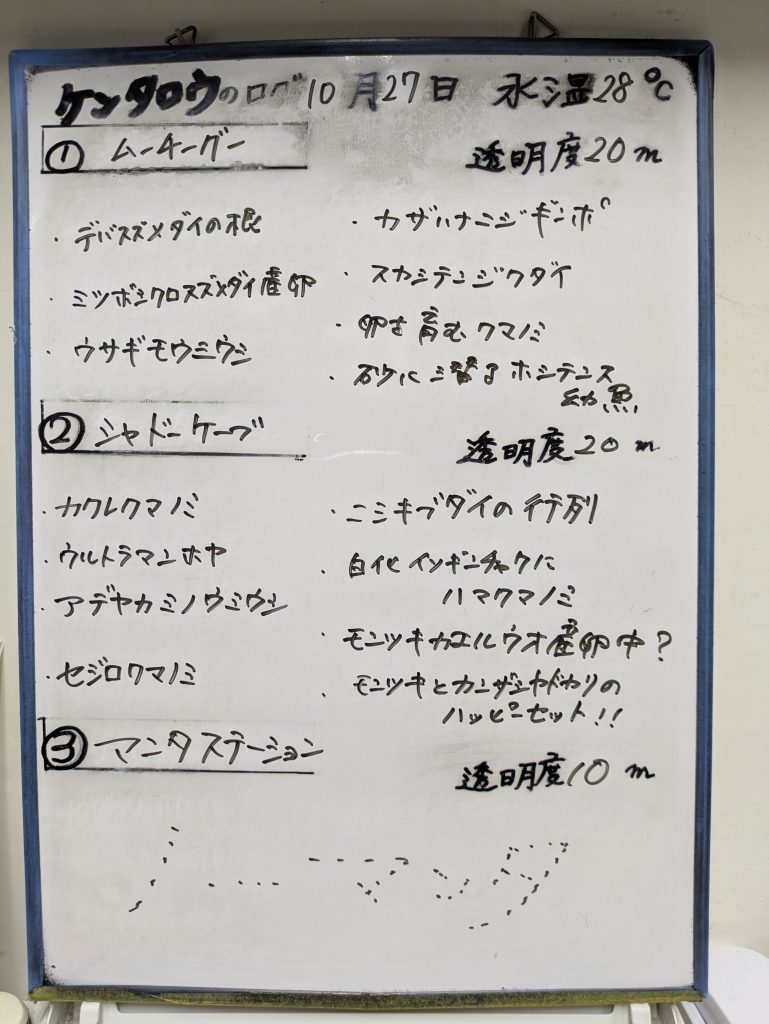 ケンタロウのログ 10月27日 水温28℃
① ムーチーグー
透明度20m
・デバスズメダイの根
・ミツボシクロスズメダイ産卵
・ウサギモウミウシ
・カザハナニジギンポ
・スカシテンジクダイ
・卵を育むクマノミ
・砂に潜るホシテンス
幼魚
② シャドーケーブ
透明度20m
・カクレクマノミ
・ウルトラマンホヤ
・アデヤカミノウミウシ
・セジロクマノミ
・ニシキブダイの行列
・白化イソギンチャクに
ハマクマノミ
・モンツキカエルウオ産卵中?
・モンツキとカンザシヤドカリの
ハッピーセット!!
③ マンタステーション
透明度10m
ノーマンタ